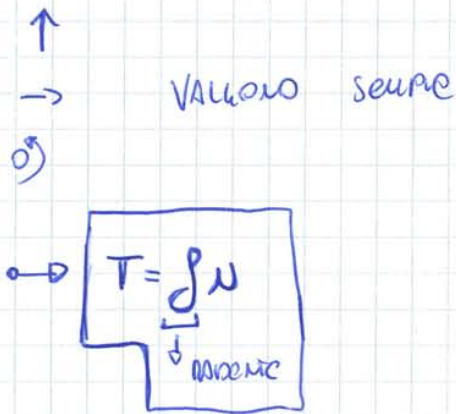 ↑
→ VALGONO SEMPRE
O)
T = f N
RADENTE